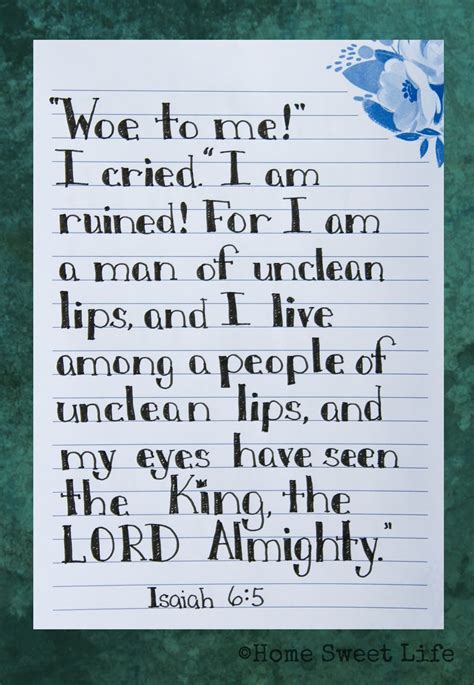 "Woe to me!"
I cried. "I am
ruined! For I am
a man of unclean
lips, and I live
among a people of
unclean lips, and
my eyes have seen
the King, the
LORD Almighty."
Isaiah 6:5
©Home Sweet Life